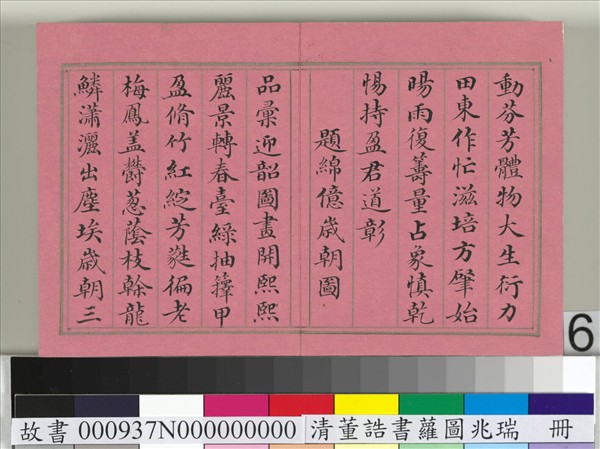 動芬芳體物大生衍力
田東作忙滋培方肇始
暘雨復籌量占象慎乾
惕持盈君道彰
題綿億歲朝圖
品彙迎韶圖畫開熙熙
麗景轉春臺綠抽籜甲
盈脩竹紅綻芳蕤徧老
梅鳳蓋欝葱蔭枝榦龍
鱗瀟灑出塵埃歲朝三
6
故書 000937N000000000 清董誥書蘿圖兆瑞 冊